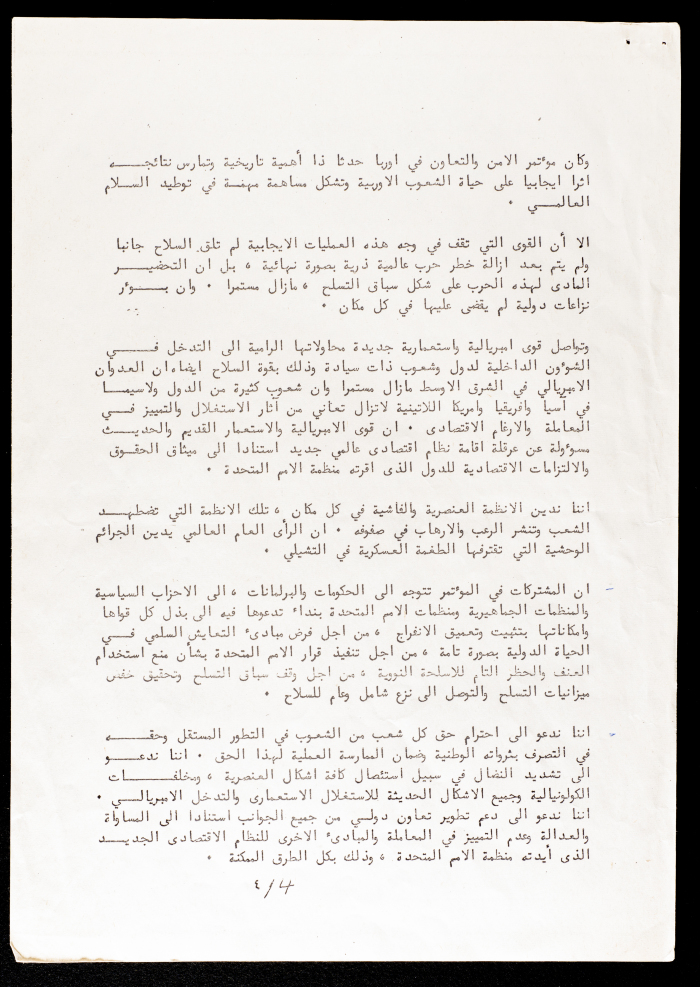 وكان مؤتمر الامن والتعاون في اوربا حدثا ذا أهمية تاريخية وتمارس نتائجه
اثرا ايجابيا على حياة الشعوب الاوربية وتشكل مساهمة مهمة في توطيد السلام
العالمي .
الا أن القوى التي تقف في وجه هذه العمليات الايجابية لم تلق السلاح جانبا
ولم يتم بعد ازالة خطر حرب عالمية ذرية بصورة نهائية ، بل ان التحضير
المادى لهذه الحرب على شكل سباق التسلح ، مازال مستمرا . وان بؤر
نزاعات دولية لم يقضى عليها في كل مكان .
وتواصل قوى امبريالية واستعمارية جديدة محاولاتها الرامية الى التدخل في
الشؤون الداخلية لدول وشعوب ذات سيادة وذلك بقوة السلاح ايضاء ان العدوان
الامبريالي في الشرق الاوسط مازال مستمرا وان شعوب كثيرة من الدول ولاسيما
في آسيا وافريقيا وامريكا اللاتينية لاتزال تعاني من آثار الاستغلال والتمييز في
المعاملة والارغام الاقتصادى . ان قوى الامبريالية والاستعمار القديم والحديث
مسؤولة عن عرقلة اقامة نظام اقتصادى عالمي جديد استنادا الى ميثاق الحقوق
والالتزامات الاقتصادية للدول الذى اقرته منظمة الامم المتحدة .
اننا ندين الانظمة العنصرية والفاشية في كل مكان ، تلك الانظمة التي تضطهد
الشعب وتنشر الرعب والارهاب في صفوفه . ان الرأى العام العالمي يدين الجرائم
الوحشية التي تقترفها الطغمة العسكرية في التشيلي .
ان المشتركات في المؤتمر تتوجه الى الحكومات والبرلمانات ، الى الاحزاب السياسية
والمنظمات الجماهيرية ومنظمات الامم المتحدة بنداء تدعوها فيه الى بذل كل قواها
وامكاناتها بتثبيت وتعميق الانفراج ، من اجل فرض مبادئ التعايش السلمي في
الحياة الدولية بصورة تامة ، من اجل تنفيذ قرار الامم المتحدة بشأن منع استخدام
العنف والحظر التام للاسلحة النووية ، من اجل وقف سباق التسلح وتحقيق خفض
ميزانيات التسلح والتوصل الى نزع شامل وعام للسلاح .
اننا ندعو الى احترام حق كل شعب من الشعوب في التطور المستقل وحقه
في التصرف بثرواته الوطنية وضمان الممارسة العملية لهذا الحق . اننا ندعو
الى تشديد النضال في سبيل استئصال كافة اشكال العنصرية ، ومخلفات
الكولونيالية وجميع الاشكال الحديثة للاستغلال الاستعمارى والتدخل الامبريالي .
اننا ندعو الى دعم تطوير تعاون دولي من جميع الجوانب استنادا الى المساواة
والعدالة وعدم التمييز في المعاملة والمبادئ الاخرى للنظام الاقتصادى الجديد
الذى أيدته منظمة الامم المتحدة ، وذلك بكل الطرق الممكنة .
٤/4